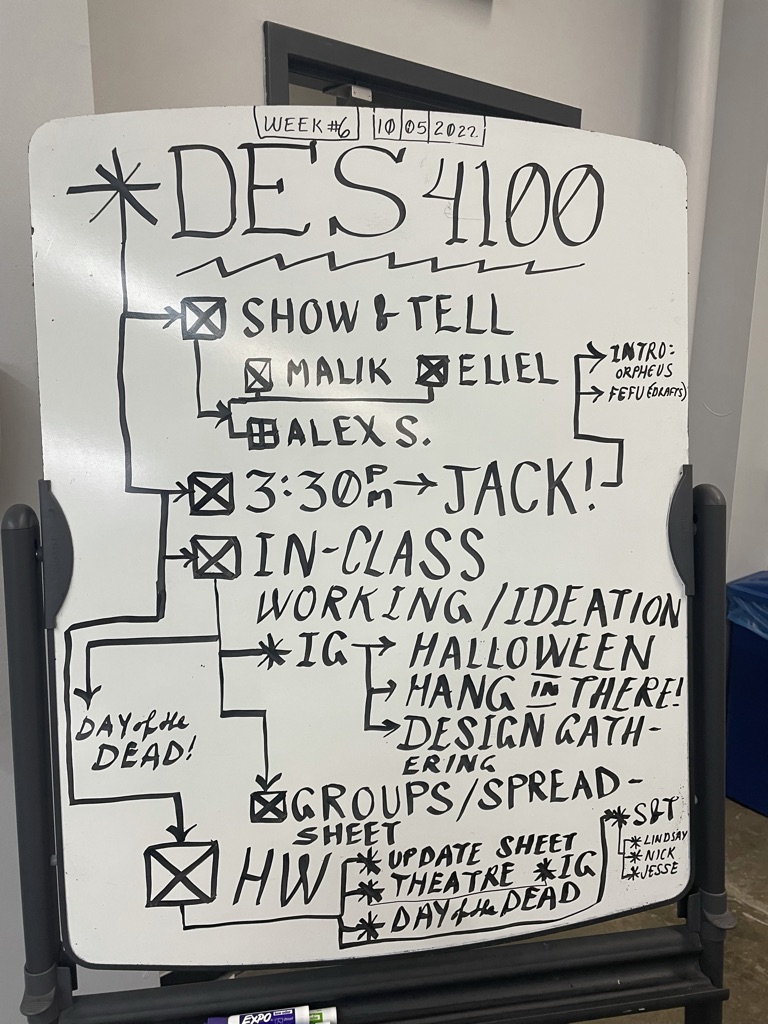 WEEK #6 10 05 2022
DES 4100
SHOW & TELL
MALIK ELIEL
ALEX S.
INTRO:
ORPHEUS
FEFU (DRAFTS)
3:30PM → JACK!
IN-CLASS
WORKING/IDEATION
* IG → HALLOWEEN
HANG IN THERE!
DESIGN GATH-
ERING
DAY of the
DEAD!
GROUPS/SPREAD-
SHEET
HW
* UPDATE SHEET
* THEATRE * IG
* DAY of the DEAD
* S&T
* LINDSAY
* NICK
* JESSE
EXPO